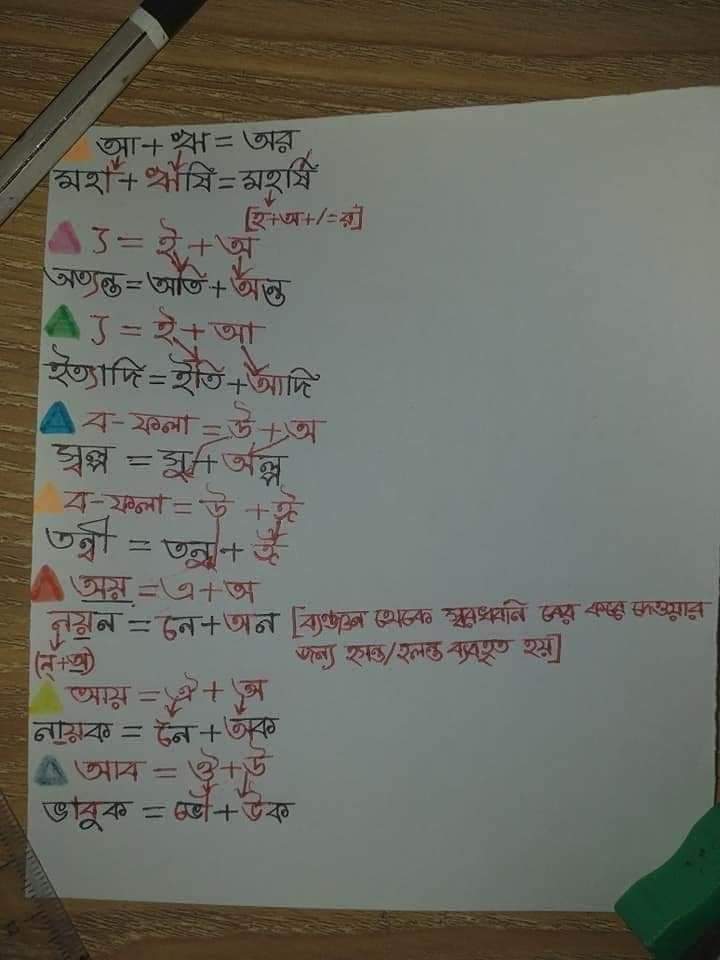 আ + ঋ = অর
মহা + ঋষি = মহর্ষি
[হ+অ+/=র]
্য = ই + অ
অত্যন্ত = অতি + অন্ত
্য = ই + আ
ইত্যাদি = ইতি + আদি
ব-ফলা = উ + অ
স্বল্প = সু + অল্প
ব-ফলা = উ + ঈ
তন্বী = তনু + ঈ
অয় = এ + অ
নয়ন = নে + অন [ব্যঞ্জন থেকে স্বরধ্বনি বের করে দেওয়ার
(ন্+অ) জন্য হসন্ত/হলন্ত ব্যবহৃত হয়]
আয় = ঐ + অ
নায়ক = নৈ + অক
আব = ঔ + উ
ভাবুক = ভৌ + উক